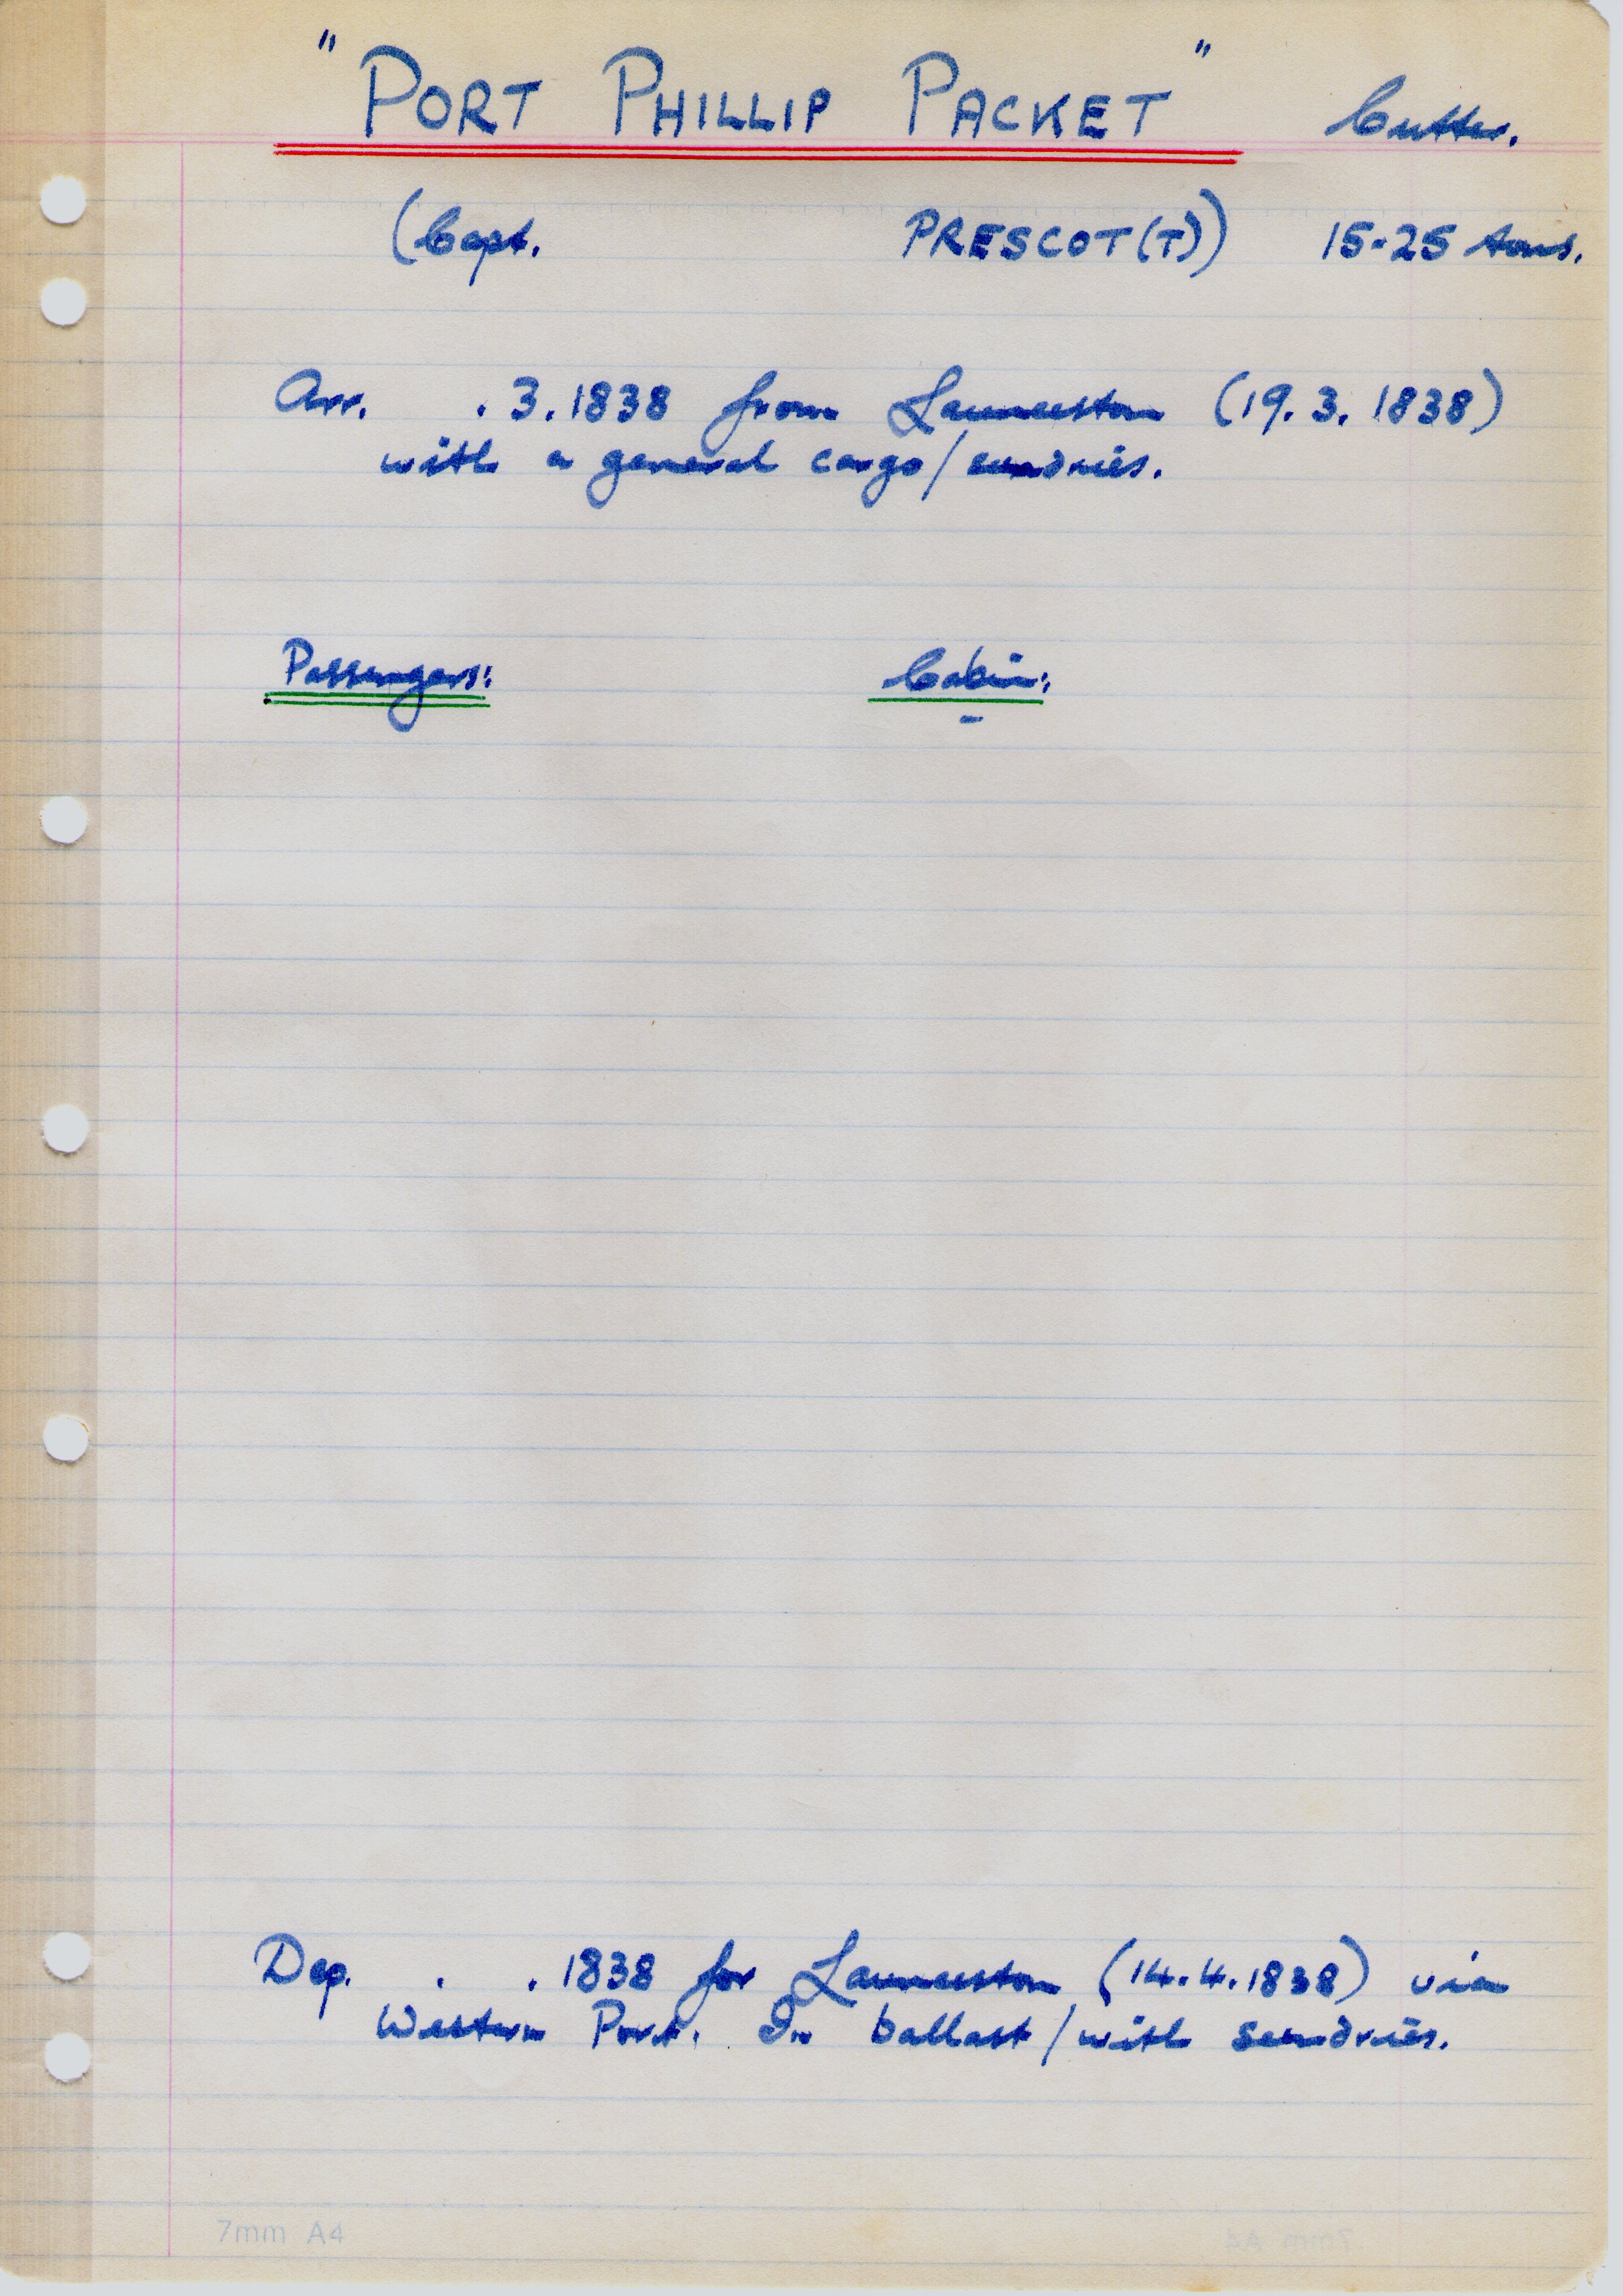 "PORT PHILLIP PACKET" Cutter.
(Capt. PRESCOT(T)) 15-25 tons.
Arr. . 3. 1838 from Launceston (19. 3. 1838)
with a general cargo/sundries.
Passengers: Cabin:
-
Dep. . . 1838 for Launceston (14. 4. 1838) via
Western Port. In ballast/with sundries.
7mm A4